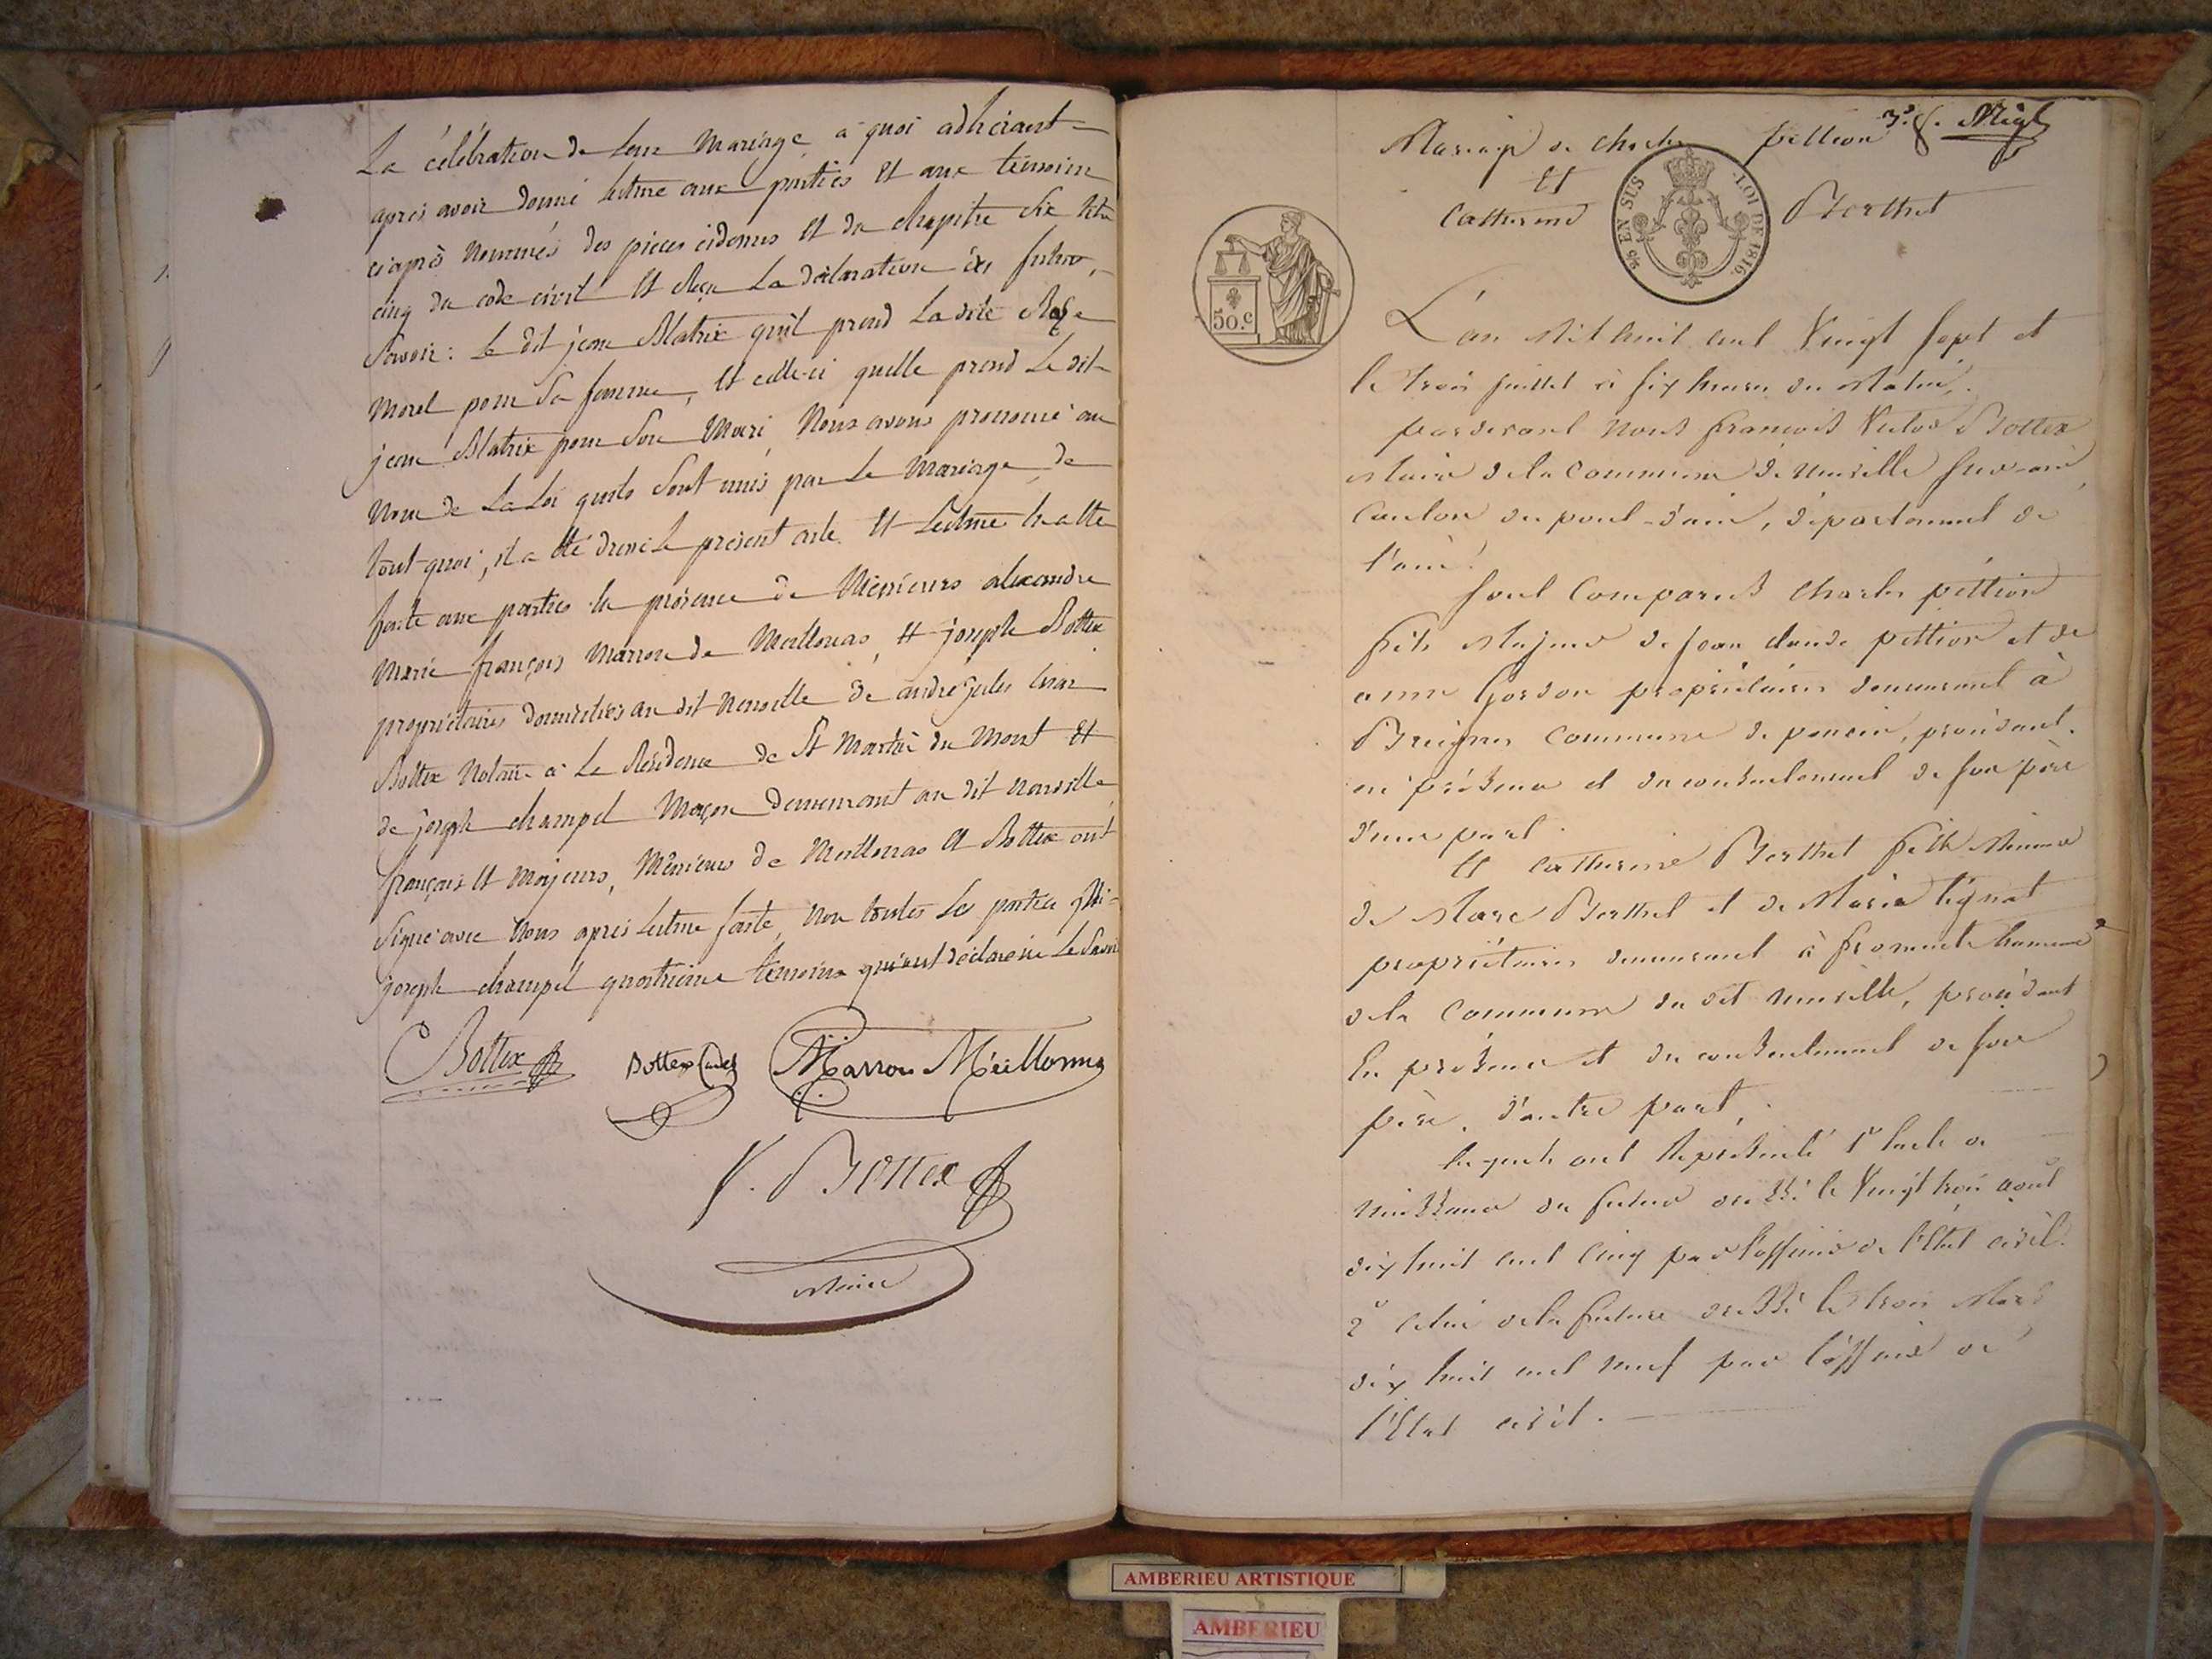 La célébration de leur Mariage, a quoi adhérant
après avoir donné lecture aux parties et aux témoins
ciaprès nommés des pièces cidessus et du chapitre six titre
cinq du code civil et reçu La déclaration des futurs,
Savoir: Le dit jean Blatrix qu'il prend La dite Rose
Morel pour Sa femme, et celle-ci quelle prend Le dit
jean Blatrix pour Son Mari, Nous avons prononcé au
Nom de La Loi quils Sont unis par Le Mariage, de
tout quoi, il a été dressé Le présent acte et Lecture
faite aux parties en présence de Messieurs alexandre
Marie françois Marron de Meillonas, et joseph Bottex
propriétaires domiciliés au dit Neuville de andré jules
Bottex Notaire à La Résidence de St Martin du Mont et
de joseph champel Maçon demeurant au dit Neuville,
français et Majeurs, Messieurs de Meillonas et Bottex ont
Signé avec Nous après Lecture faite, Non toutes Les parties Ni
joseph champel quatrième témoins qui ont déclaré ne Le Savoir
Bottex
Bottex Cadet
Marron Meillonas
V. Bottex
Maire
Mariage de Charles pettion
Et
Catherine Berthet
EN SUS
LOI DE 1816.
50.c
L'an Mil huit cent Vingt Sept et
le trois juillet à six heures du Matin.
pardevant Nous françois Victor Bottex
Maire de la Commune de Neuville Sur-ain
Canton du pont-d'ain, département de
l'ain.
Sont Comparus Charles pettion
fils Majeur de jean claude pettion et de
anne Gordon propriétaires demeurant à
Breignes Commune de poncin, procédant
en présence et du consentement de son père
d'une part.
Et Catherine Berthet fille Mineure
de Marc Berthet et de Maria tignat
propriétaires demeurant à fromente hameau
de la Commune du dit Neuville, procédant
En présence et du consentement de son
père, d'autre part,
Lesquels ont Représenté 1° l'acte de
Naissance du futur dressé le Vingt trois août
dix huit cent Cinq par l'officier de l'État civil.
2° Celui de la future dressé le trois Mars
dix huit cent neuf par l'officier de
l'État civil.
AMBERIEU ARTISTIQUE
AMBERIEU